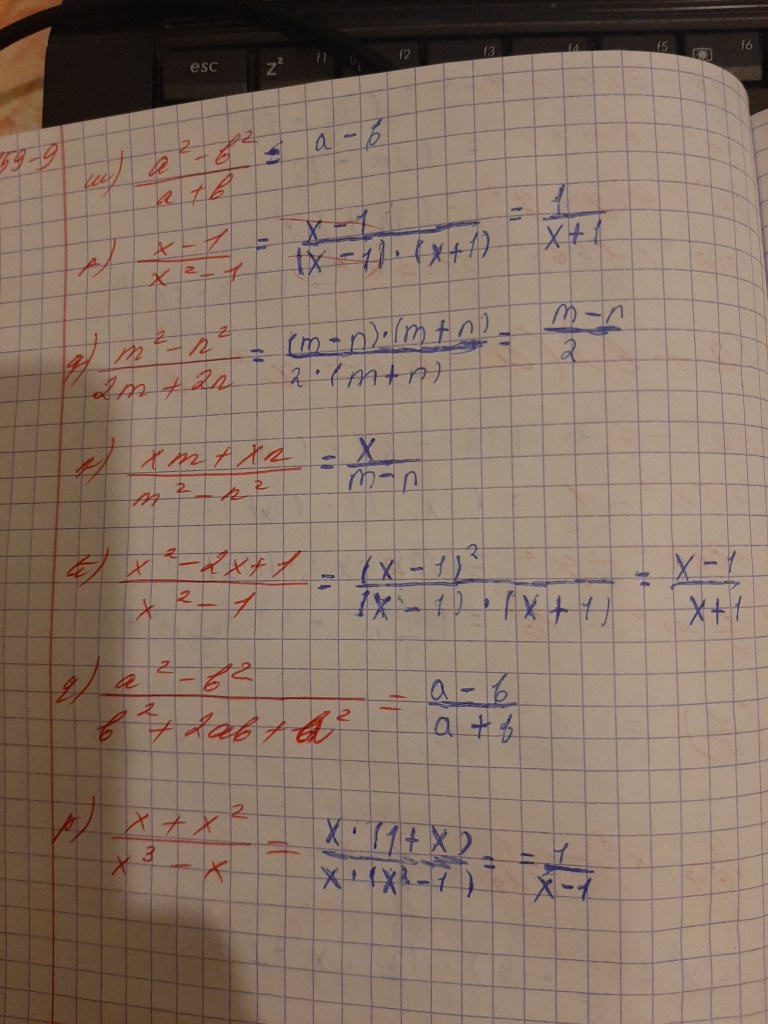 esc z² f1 f2 f3 f4 f5 f6
59-9
т) (a² - b²)/(a + b) = a - b
(x - 1)/(x² - 1) = (x - 1)/((x - 1)·(x + 1)) = 1/(x + 1)
g) (m² - n²)/(2m + 2n) = ((m - n)·(m + n))/(2·(m + n)) = (m - n)/2
(xm + xn)/(m² - n²) = x/(m - n)
(x² - 2x + 1)/(x² - 1) = (x - 1)²/((x - 1)·(x + 1)) = (x - 1)/(x + 1)
(a² - b²)/(b² + 2ab + a²) = (a - b)/(a + b)
(x + x²)/(x³ - x) = (x·(1 + x))/(x·(x² - 1)) = = 1/(x - 1)